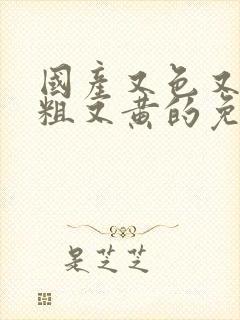 國產又色又
粗又黄的免
是芝芝